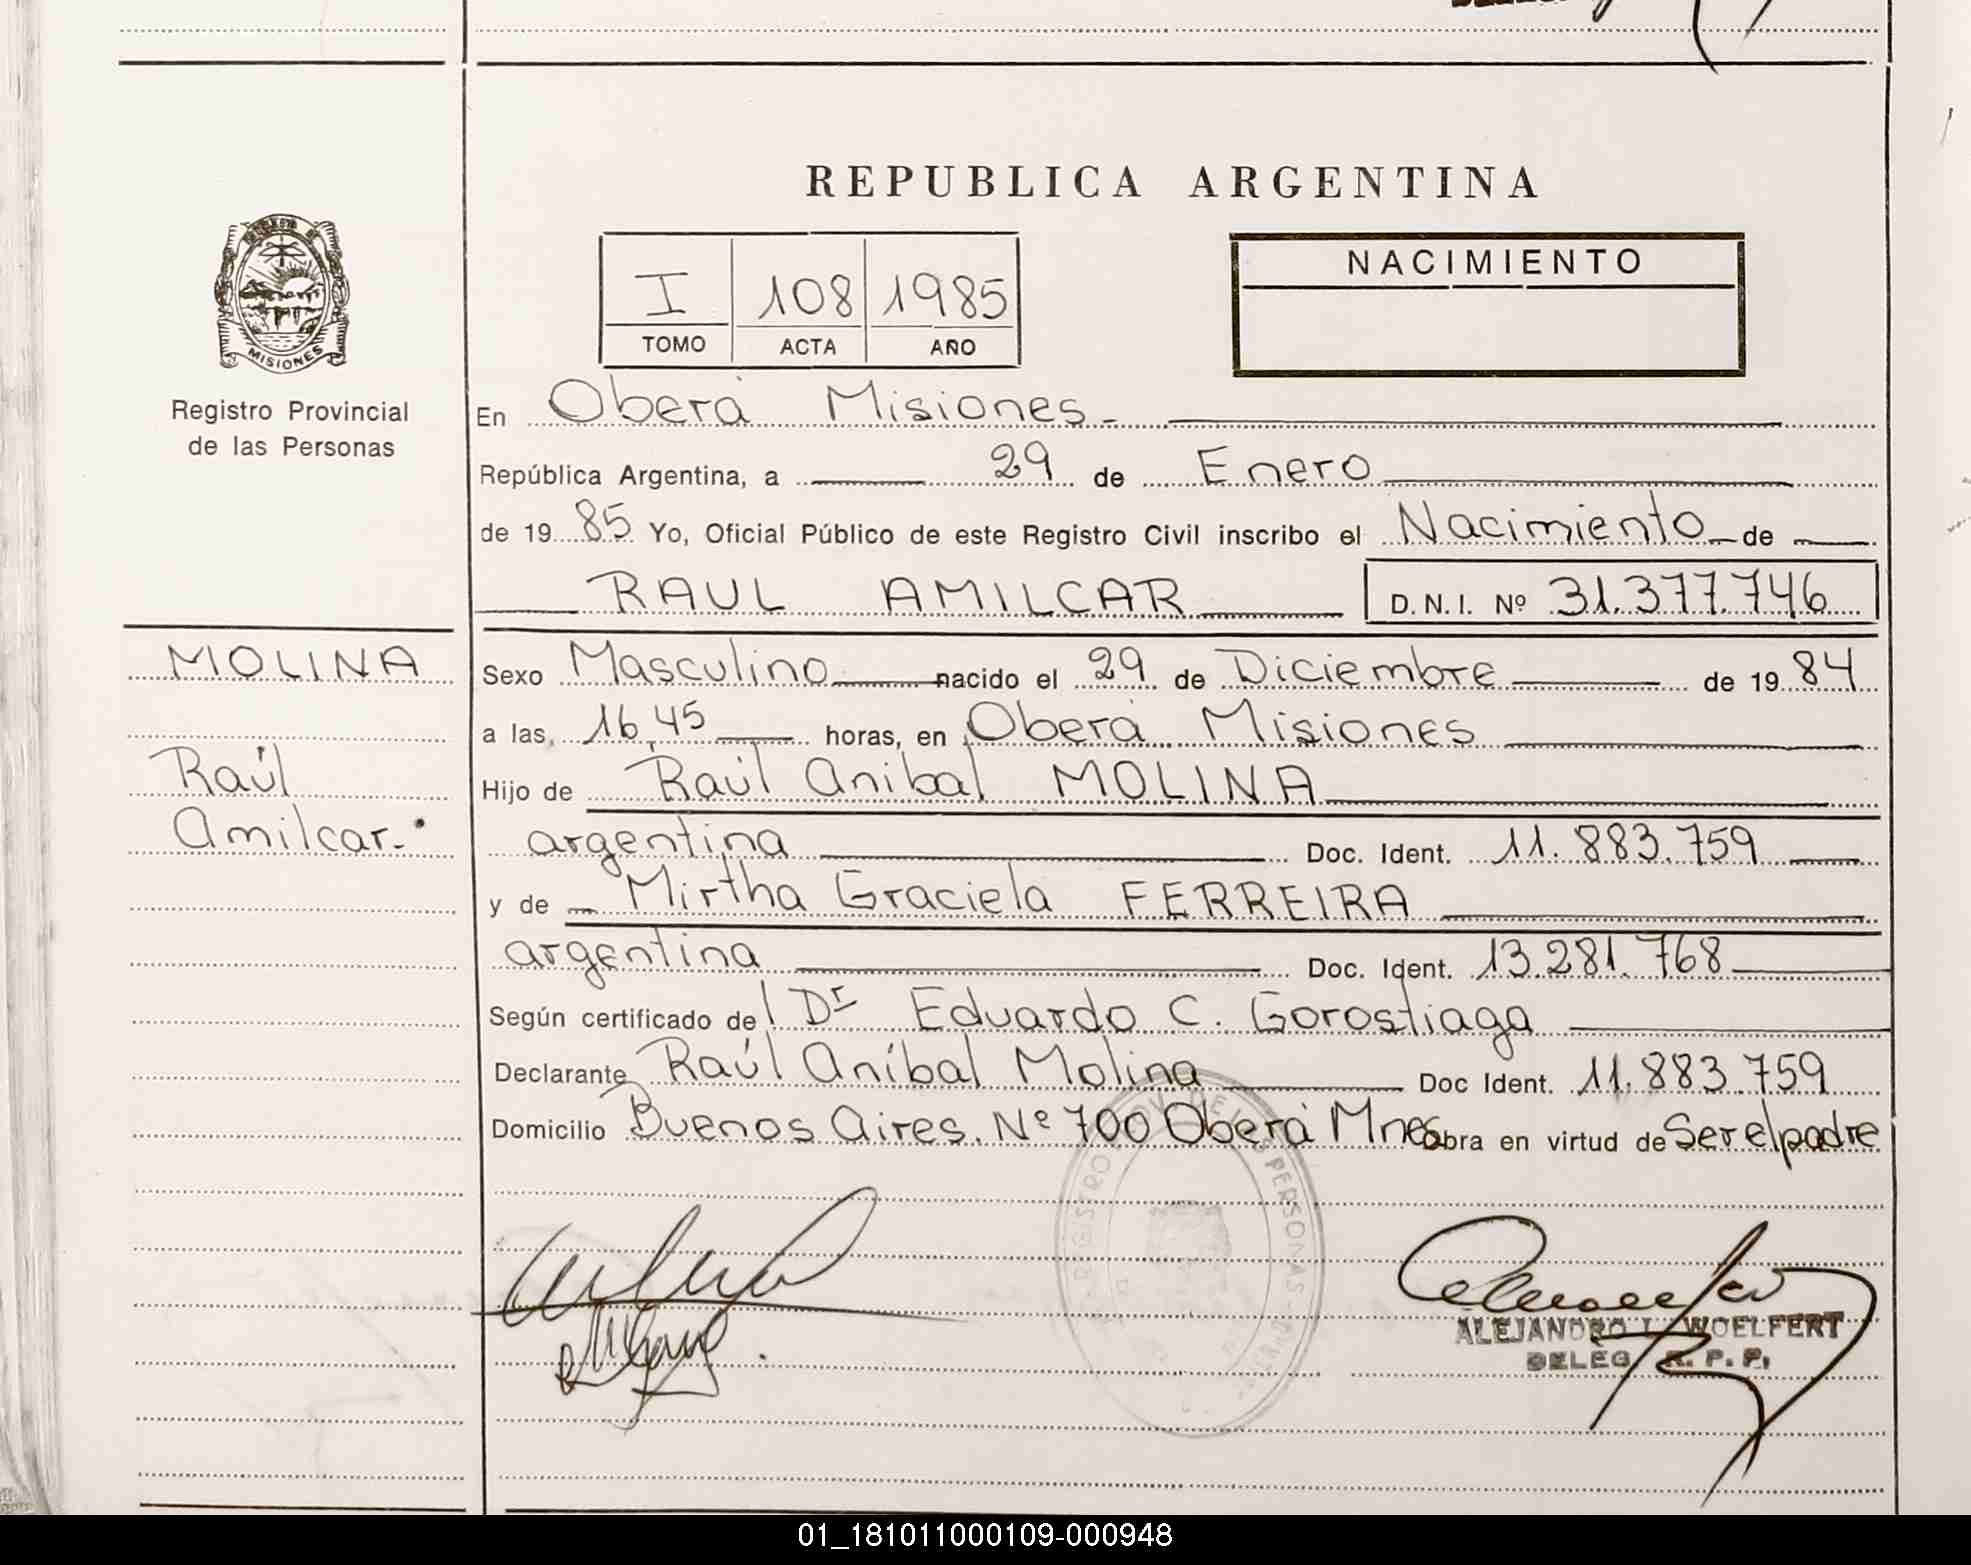 REPUBLICA ARGENTINA
NACIMIENTO
I 108 1985
TOMO ACTA AÑO
MISIONES
Registro Provincial
de las Personas
En Oberá Misiones
República Argentina, a 29 de Enero
de 19 85 Yo, Oficial Público de este Registro Civil inscribo el Nacimiento de
RAUL AMILCAR D.N.I. Nº 31.377.746
MOLINA
Raúl
Amilcar.
Sexo Masculino nacido el 29 de Diciembre de 19 84
a las 16,45 horas, en Oberá Misiones
Hijo de Raúl Aníbal MOLINA
argentina Doc. Ident. 11.883.759
y de Mirtha Graciela FERREIRA
argentina Doc. Ident. 13.281.768
Según certificado del Dr Eduardo C. Gorostiaga
Declarante Raúl Aníbal Molina Doc Ident. 11.883.759
Domicilio Buenos Aires. Nº 700 Oberá Mnes obra en virtud de Ser el padre
ALEJANDRO WOELFERT
DELEG R.P.P.
01_181011000109-000948